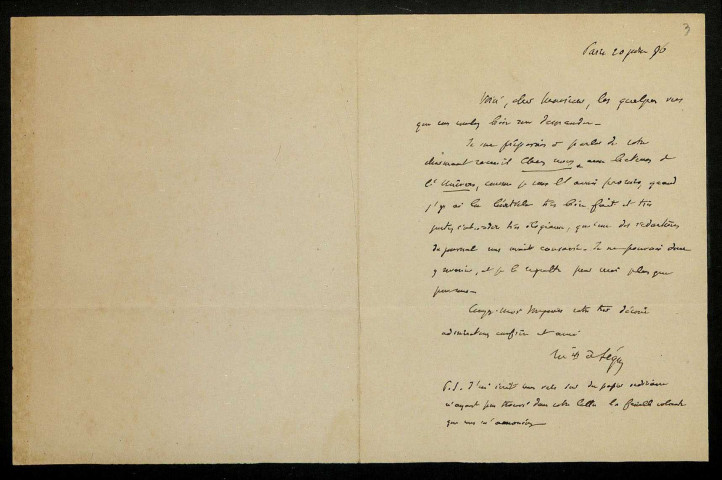 3
Paris 20 juillet 96
Voici, cher Monsieur, les quelques vers
que vous voulez bien me demander.
Je me préparais à parler de votre
charmant recueil Chez nous, aux lecteurs de
l'Univers, comme je vous l'avais promis, quand
j'y ai lu l'article très bien fait et très
juste, c'est-à-dire très élogieux, qu'un des rédacteurs
du journal vous avait consacré. Je ne pouvais donc
y revenir, et je le regrette pour moi plus que
pour vous.
Croyez-moi toujours votre très dévoué
admirateur confrère et ami
de Ségur
P.S. J'ai écrit mes vers sur du papier ordinaire
n'ayant pas trouvé dans votre lettre la feuille volante
que vous m'annonciez